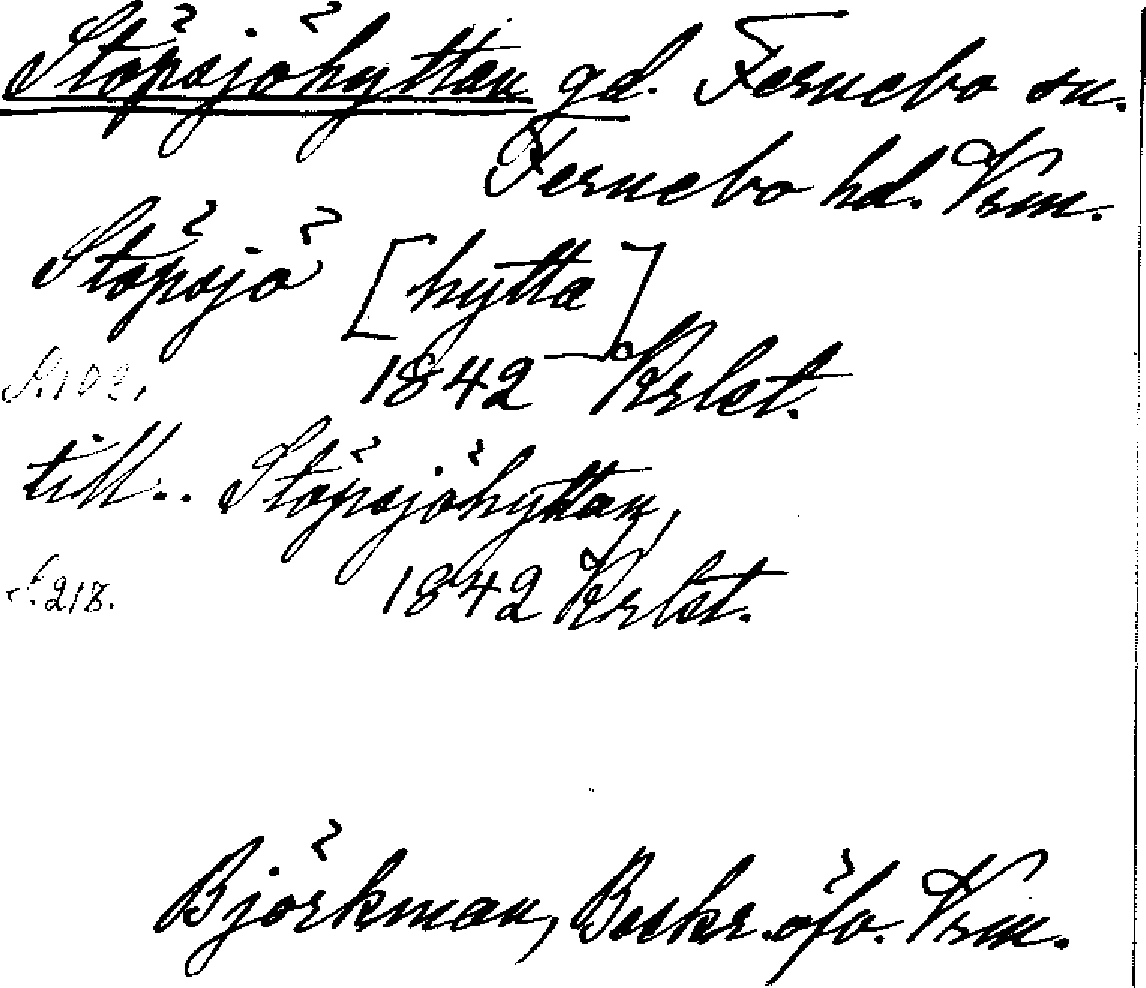 Stöpsjöhyttan gd. Fernebo sn.
Fernebo hd. Vrm.
Stöpsjö [hytta]
S. 102. 1842 Krlst.
till.. Stöpsjöhyttan,
s. 218. 1842 Krlst.
Björkman, Beskr. öfv. Vrm.